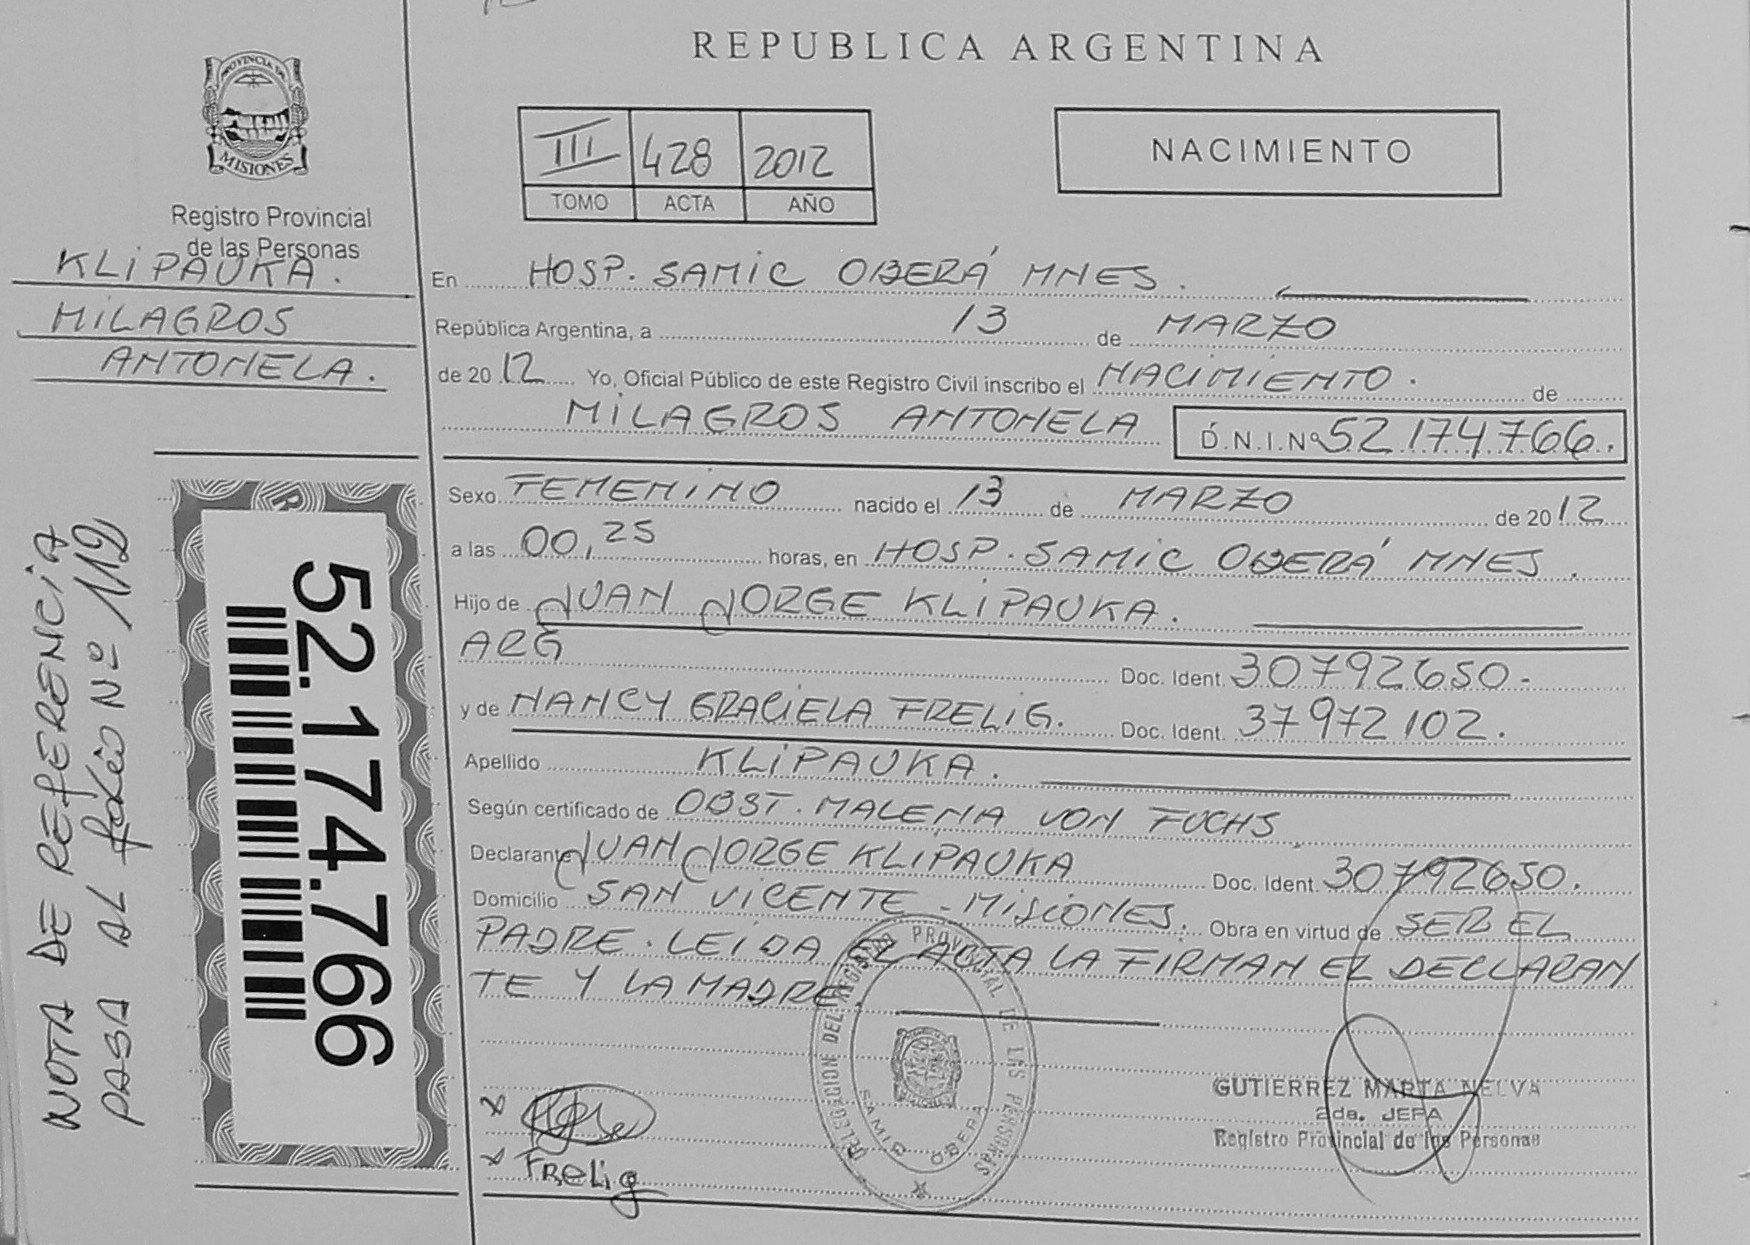 PROVINCIA DE
MISIONES
Registro Provincial
de las Personas
KLIPAUKA.
MILAGROS
ANTONELA.
NOTA DE REFERENCIA
PASA AL folio Nº 112
52.174.766
REPUBLICA ARGENTINA
III 428 2012
TOMO ACTA AÑO
NACIMIENTO
En HOSP. SAMIC OBERÁ MNES.
República Argentina, a 13 de MARZO
de 2012 Yo, Oficial Público de este Registro Civil inscribo el NACIMIENTO. de
MILAGROS ANTONELA D.N.I.Nº 52.174.766.
Sexo FEMENINO nacido el 13 de MARZO de 2012
a las 00,25 horas, en HOSP. SAMIC OBERÁ MNES.
Hijo de JUAN JORGE KLIPAUKA.
ARG Doc. Ident. 30792650.
y de NANCY GRACIELA FRELIG. Doc. Ident. 37972102.
Apellido KLIPAUKA.
Según certificado de OBST. MALENA VON FUCHS
Declarante JUAN JORGE KLIPAUKA Doc. Ident. 30792650.
Domicilio SAN VICENTE - MISIONES. Obra en virtud de SER EL
PADRE. LEIDA EL ACTA LA FIRMAN EL DECLARAN
TE Y LA MADRE.
DELEGACION DEL REGISTRO PROVINCIAL DE LAS PERSONAS
SAMIC OBERA
x
x Frelig
GUTIERREZ MARTA NELVA
2da. JEFA
Registro Provincial de las Personas